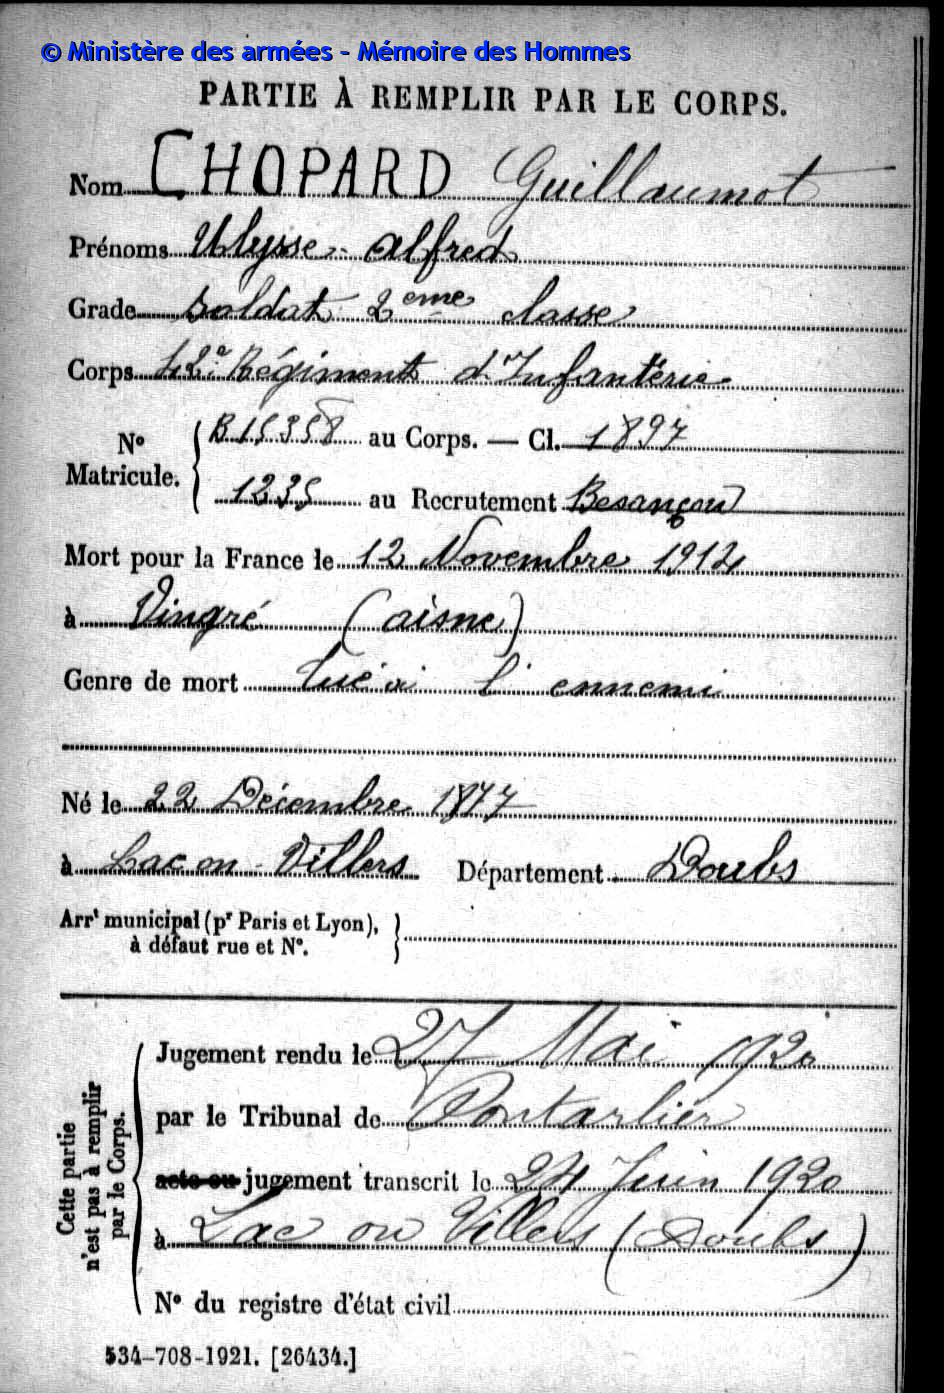 © Ministère des armées - Mémoire des Hommes
PARTIE À REMPLIR PAR LE CORPS.
Nom CHOPARD Guillaumot
Prénoms Ulysse - Alfred
Grade soldat 2eme classe
Corps 42e Régiment d'Infanterie
N° Matricule. B 15358 au Corps. — Cl. 1897
1235 au Recrutement Besançon
Mort pour la France le 12 Novembre 1914
à Vingré (aisne)
Genre de mort tué à l'ennemi
Né le 22 Décembre 1877
à Lac ou Villers Département Doubs
Arrt municipal (pr Paris et Lyon),
à défaut rue et N°.
Cette partie
n'est pas à remplir
par le Corps.
Jugement rendu le 27 Mai 1920
par le Tribunal de Pontarlier
acte ou jugement transcrit le 24 Juin 1920
à Lac ou Villers (Doubs)
N° du registre d'état civil
534-708-1921. [26434.]